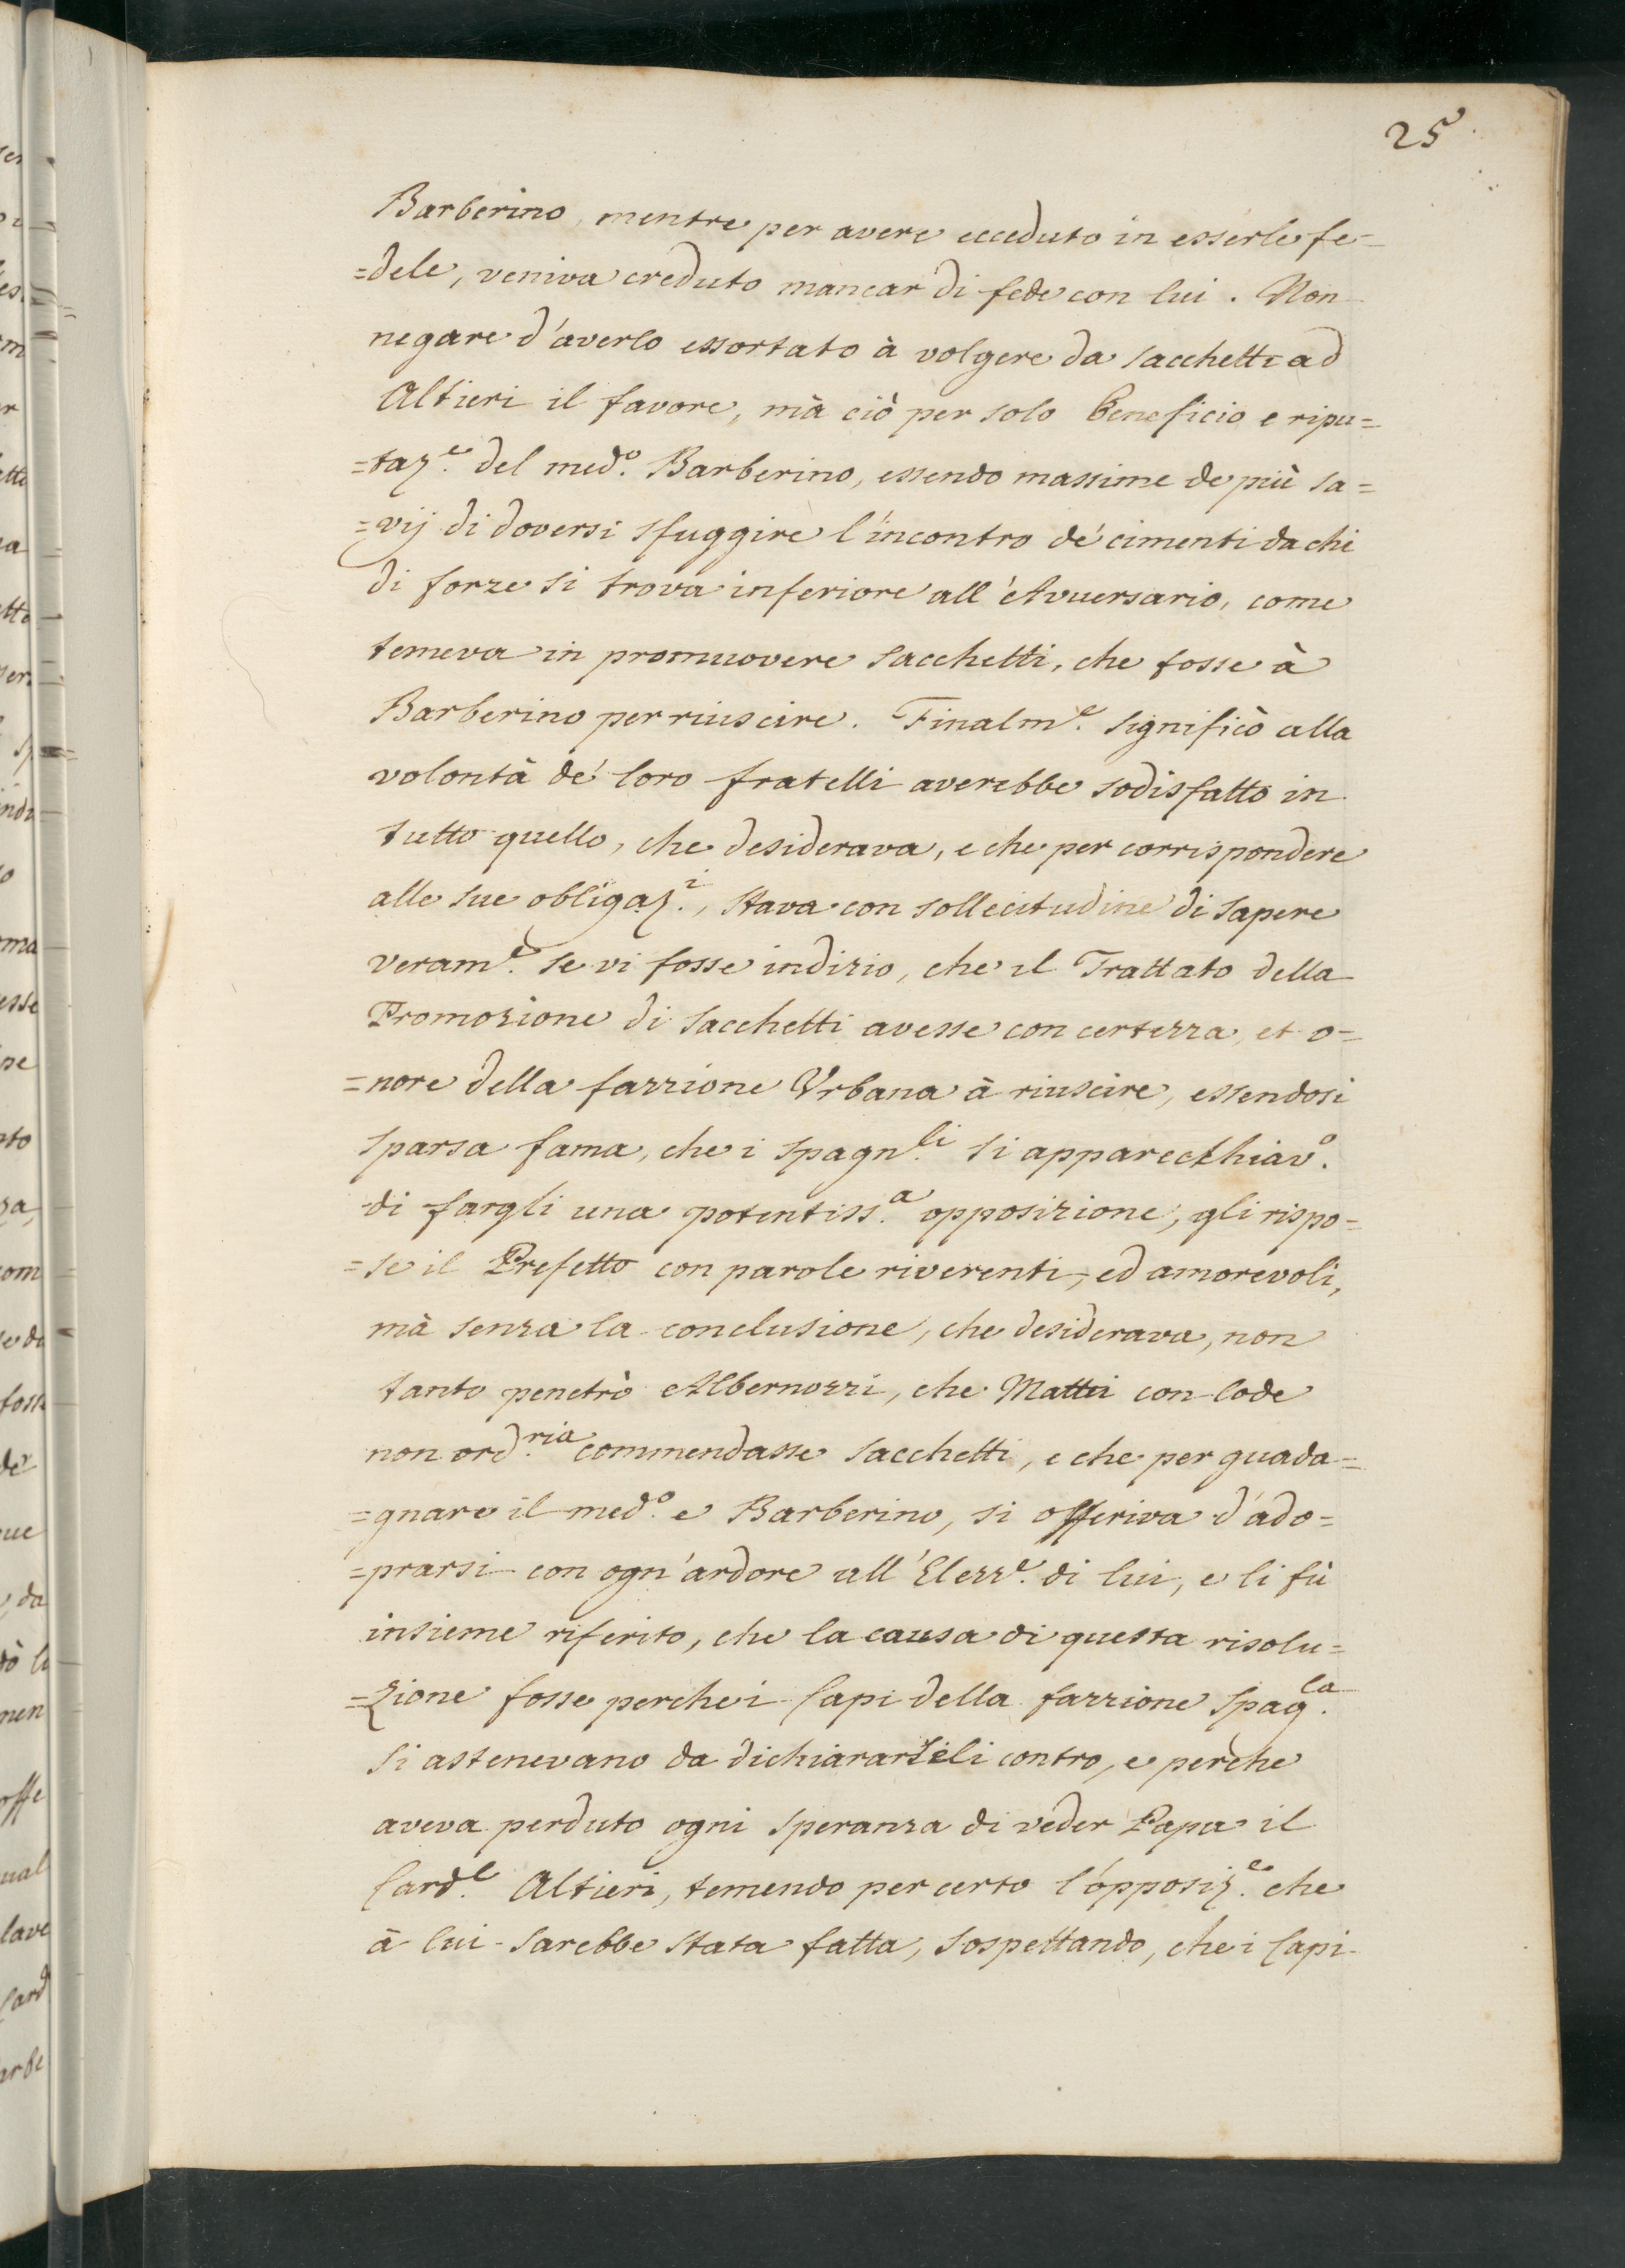 25
Barberino, mentre per avere ecceduto in esserle fe=
=dele, veniva creduto mancar di fede con lui. Non
negare d'averlo essortato à volgere da Sacchetti ad
Altieri il favore, mà ciò per solo beneficio e ripu=
=taz.e del med.o Barberino, essendo massime de più sa=
=vij di doversi sfuggire l'incontro de' cimenti da chi
di forze si trova inferiore all'Avversario, come
temeva in promuovere Sacchetti, che fosse à
Barberino per riuscire. Finalm.e significò alla
volontà de' loro fratelli averebbe sodisfatto in
tutto quello, che desiderava, e che per corrispondere
alle sue obligaz.i, stava con sollecitudine di sapere
veram.e se vi fosse indizio, che il Trattato della
Promozione di Sacchetti avesse con certezza, et o=
=nore della fazzione Urbana à riuscire, essendosi
sparsa fama, che i Spagn.li si apparecchiav.o
di fargli una potentiss.a opposizione, gli rispo=
=se il Prefetto con parole riverenti, ed amorevoli,
mà senza la conclusione, che desiderava, non
tanto penetrò Albernozzi, che Mattei con lode
non ord.ria commendasse Sacchetti, e che per guada=
=gnare il med.o e Barberino, si offeriva d'ado=
=prarsi con ogn'ardore all'Elezz.e di lui, e li fù
insieme riferito, che la causa di questa risolu=
=zione fosse perche i Capi della fazzione Spag.la
si astenevano da dichiararseli contro, e perche
aveva perduto ogni speranza di veder Papa il
Card.l Altieri, temendo per certo l'opposiz.e che
à lui sarebbe stata fatta, sospettando, che i Capi